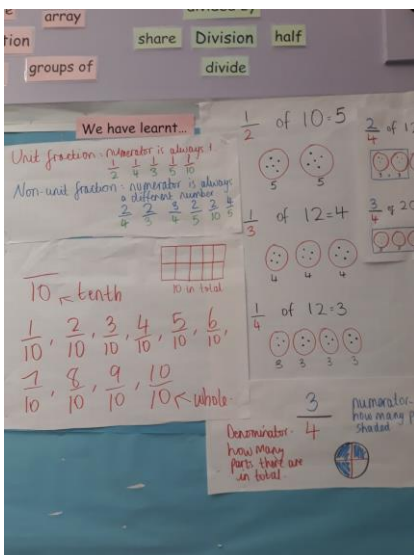 array
share Division half
groups of
divide
We have learnt...
Unit fraction: numerator is always 1
1/2 1/4 1/3 1/5 1/10
Non-unit fraction: numerator is always
a different number
2/4 2/3 3/4 2/5 3/10 4/5
10 tenth
10 in total
1/10, 2/10, 3/10, 4/10, 5/10, 6/10,
7/10, 8/10, 9/10, 10/10 whole
1/2 of 10=5
5 5
1/3 of 12=4
4 4 4
1/4 of 12=3
3 3 3 3
2/4 of 12
3 3
3/4 of 20
3/4
Denominator-
how many
parts there are
in total.
numerator-
how many
shaded